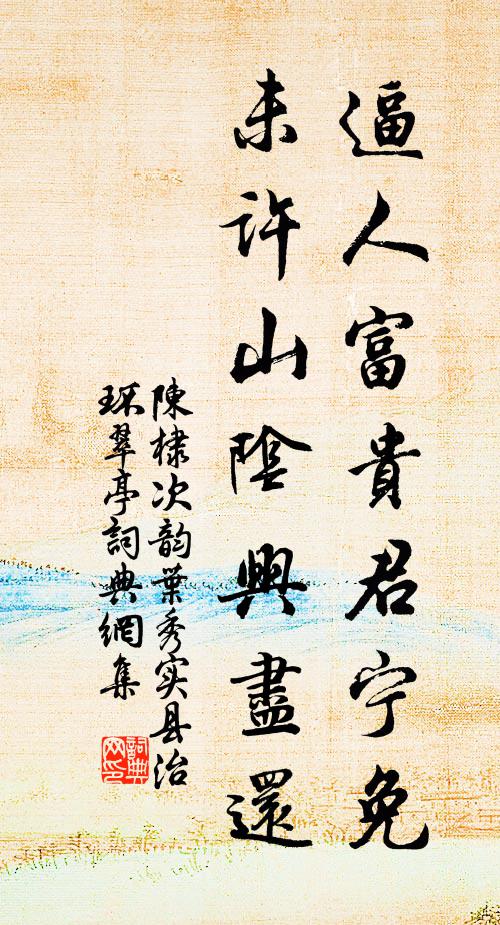 逼人富貴君宁免
未许山陰興盡還
陳棣次韵葉秀实县治
环翠亭詞典網集
詞典网印